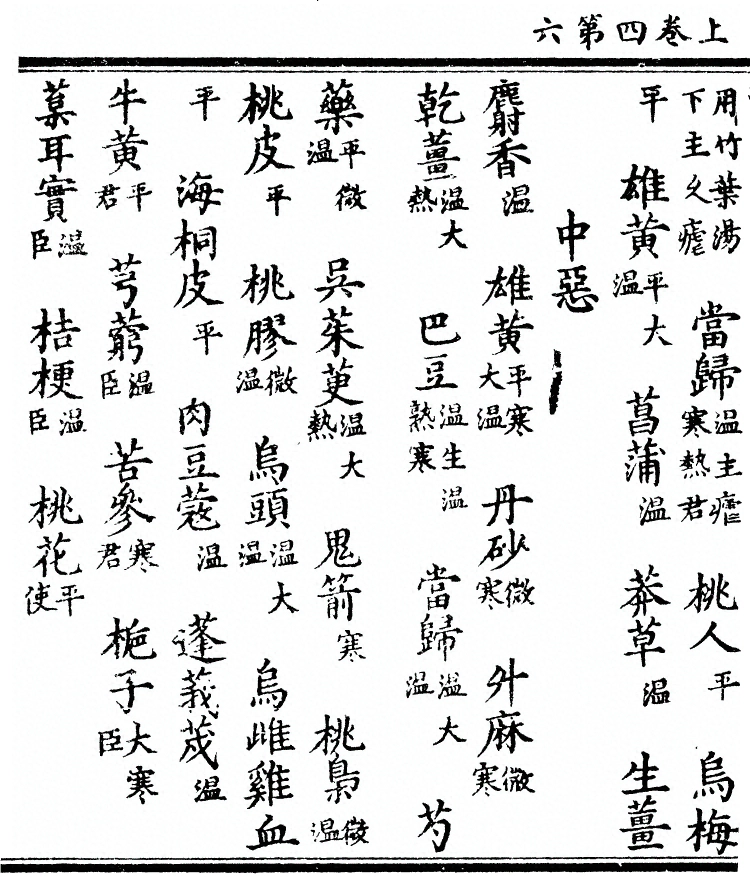 上卷四第六
用竹葉湯下主久瘧 當歸温主瘧寒熱君 桃人平 烏梅
平 雄黄平大温 菖蒲温 莽草温 生薑
中惡
麝香温 雄黄平寒大温 丹砂微寒 升麻微寒
乾薑温大熱 巴豆温生温熟寒 當歸温大温 芍
藥平微温 吳茱萸温大熱 鬼箭寒 桃梟微温
桃皮平 桃膠微温 烏頭温大温 烏雌雞血
平 海桐皮平 肉豆蔻温 蓬莪茂温
牛黄平君 芎藭温臣 苦參寒君 梔子大寒臣
葈耳實温臣 桔梗温臣 桃花平使